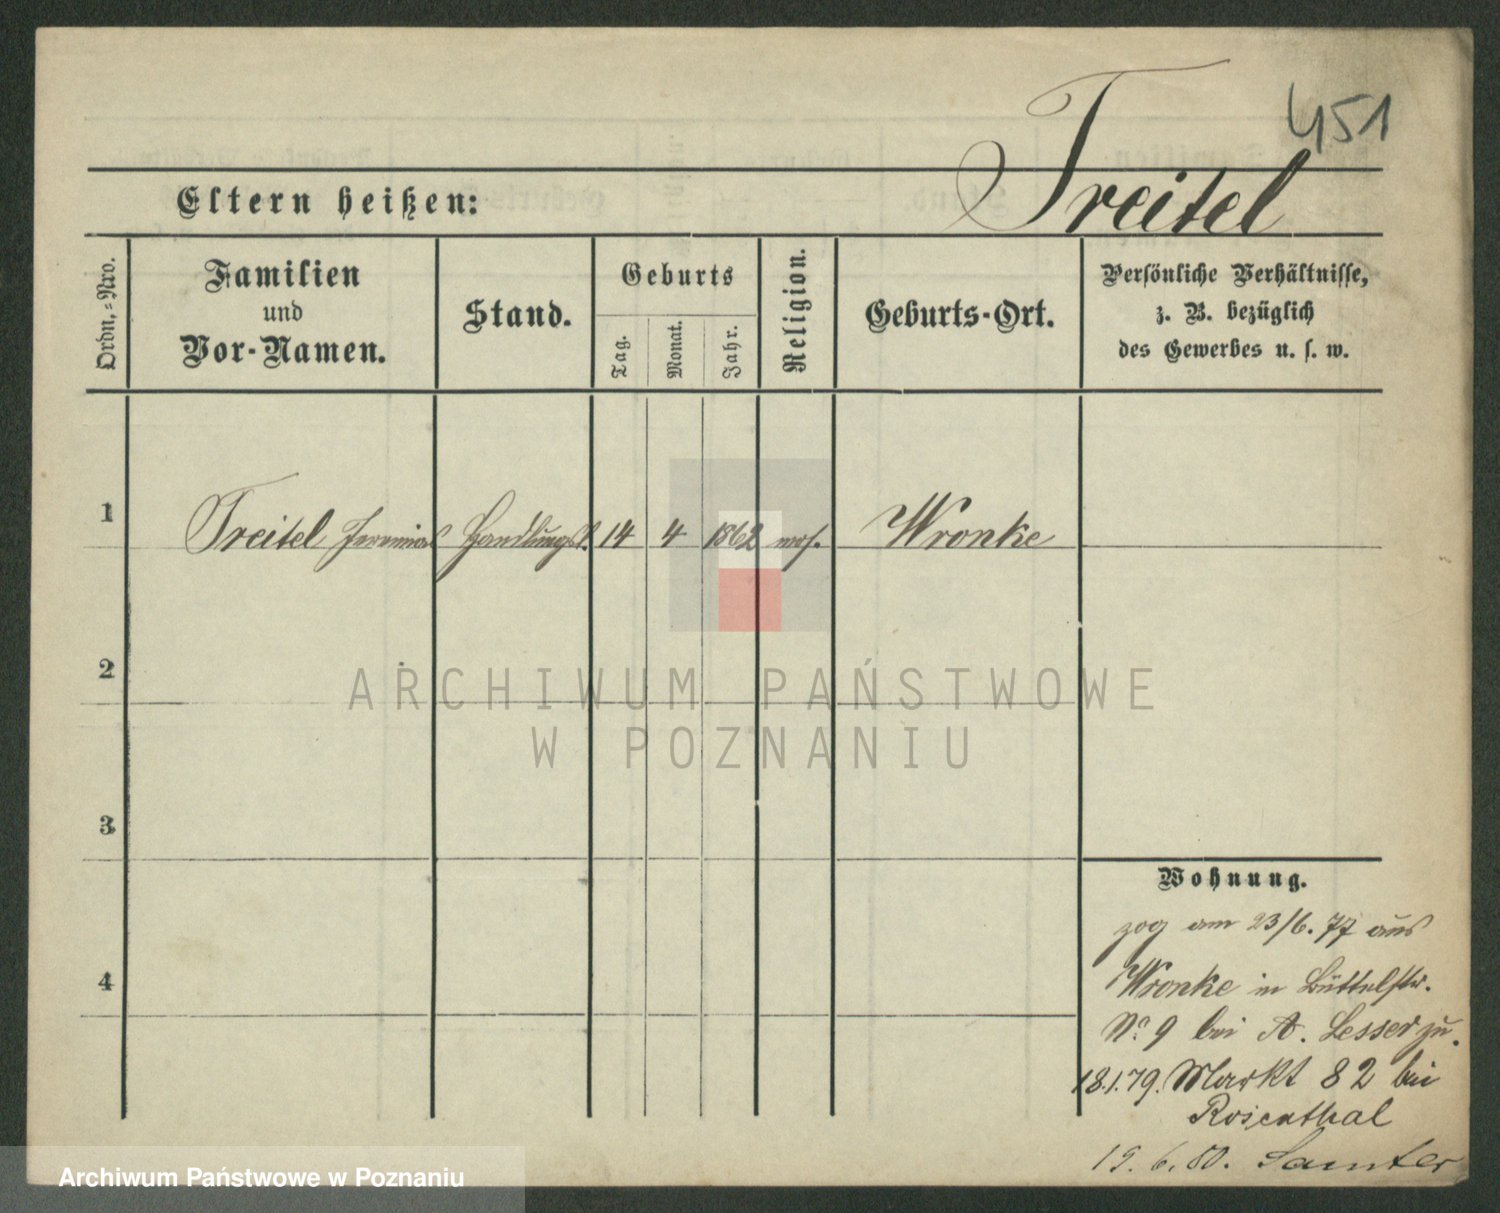 451
Treitel
Eltern heißen:
Ordn.-Nro.
Familien
und
Vor-Namen.
Stand.
Geburts
Tag.
Monat.
Jahr.
Religion.
Geburts-Ort.
Persönliche Verhältnisse,
z. B. bezüglich
des Gewerbes u. s. w.
1 Treitel Jeremias Handlungsl. 14 4 1862 mos. Wronke
2
ARCHIWUM PAŃSTWOWE
W POZNANIU
3
4
Wohnung.
zog am 23/6. 77 aus
Wronke in Büttelstr.
No 9 bei A. Lesser zu.
18.1.79. Markt 82 bei
Rosenthal
19. 6. 80. Samter
Archiwum Państwowe w Poznaniu